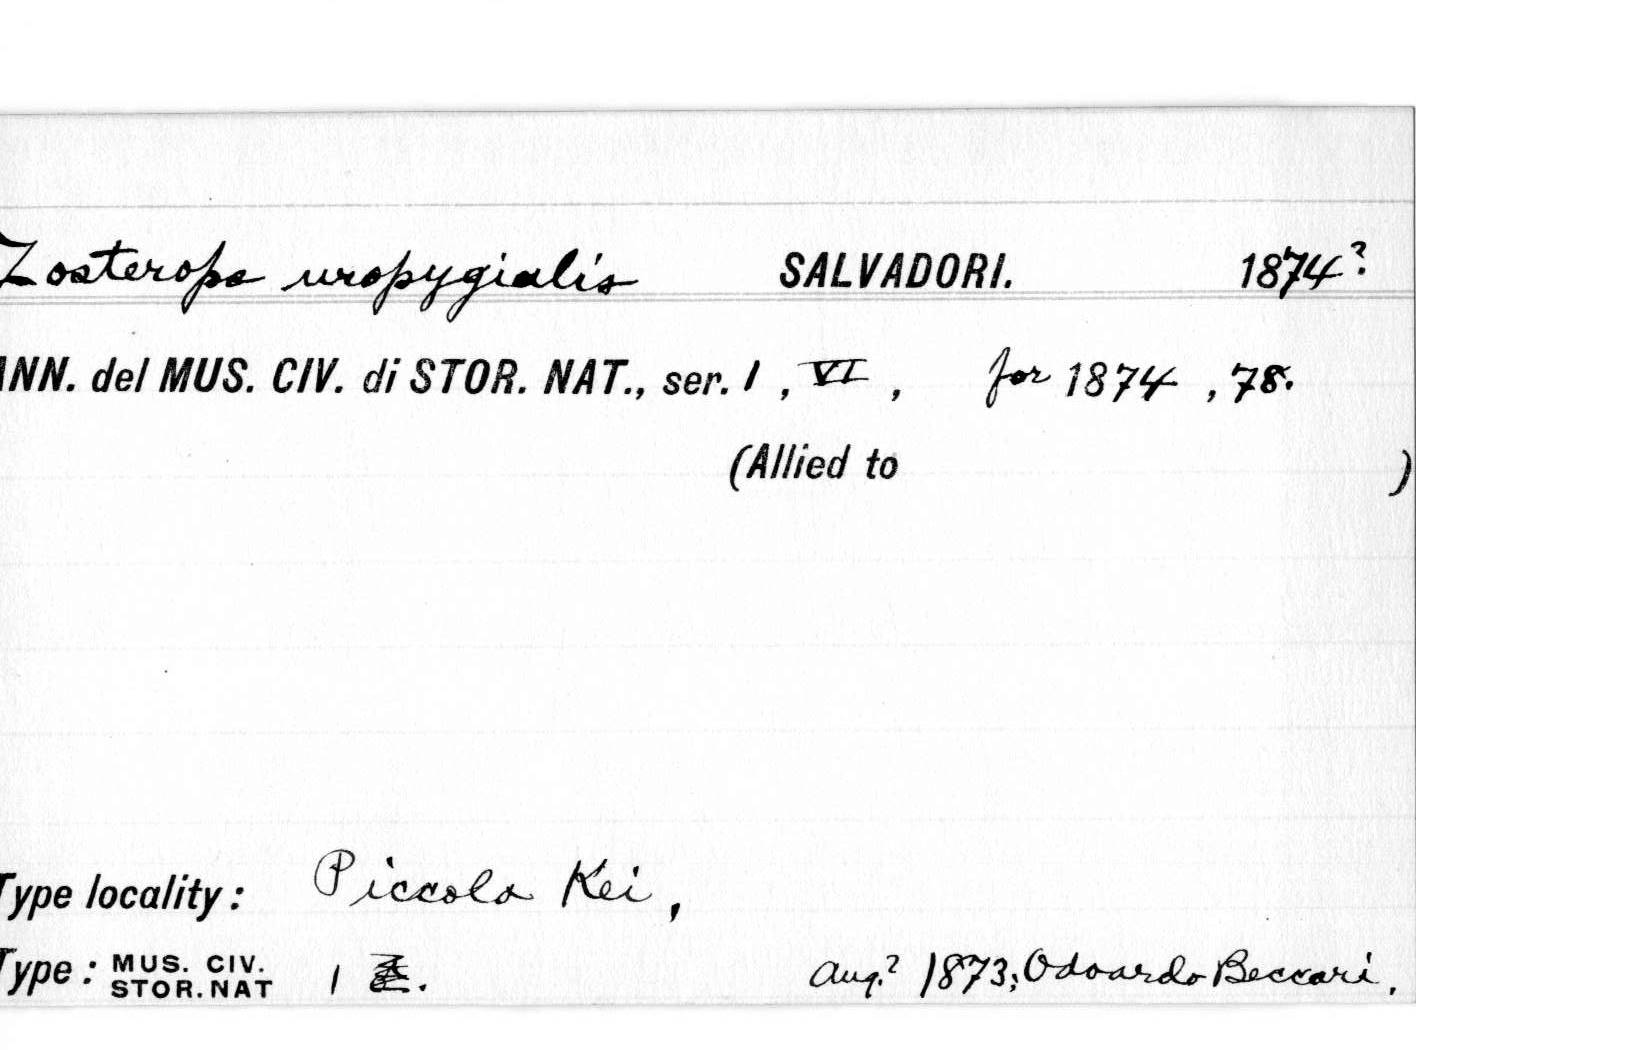 Zosterops uropygialis SALVADORI. 1874?.
ANN. del MUS. CIV. di STOR. NAT., ser. 1, VI, for 1874, 78.
(Allied to )
Type locality: Piccola Kei,
Type: MUS. CIV. STOR. NAT 1 . Aug.? 1873; Odoardo Beccari.